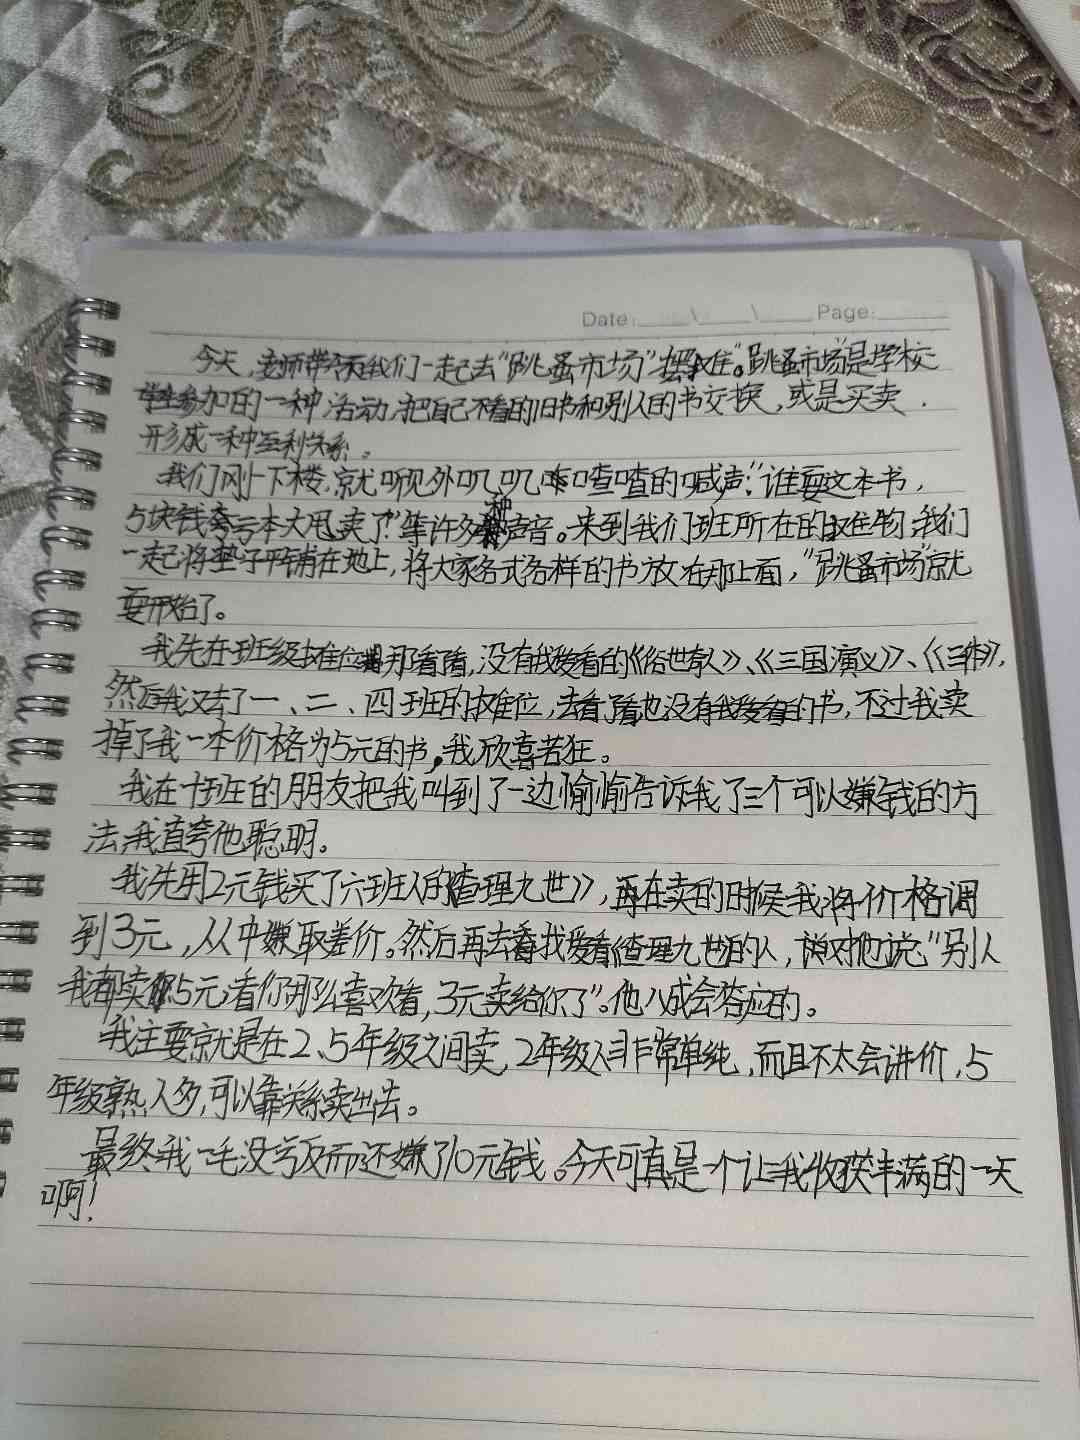 Date: \ \ Page:
今天,老师带领我们一起去“跳蚤市场”摆摊。“跳蚤市场”是学校
学生参加的一种活动,把自己不看的旧书和别人的书交换,或是买卖.
形成一种互利关系。
我们刚一下楼,就听见外叽叽喳喳的喊声:“谁要这本书,
5块钱亏本大甩卖了”等许多种声音。来到我们班所在的摊位,我们
一起将垫子平铺在地上,将大家各式各样的书放在那上面,“跳蚤市场”就
要开始了。
我先在班级摊位那看了看,没有我爱看的《俗世奇人》、《三国演义》、《三体》,
然后我又去了一、二、四班的摊位,去看了看也没有我爱看的书,不过我卖
掉了我一本价格为5元的书,我欣喜若狂。
我在十班的朋友把我叫到了一边愉愉告诉我了三个可以嫌钱的方
法,我直夸他聪明。
我先用2元钱买了六班人的《查理九世》,再在卖的时候我将价格调
到3元,从中嫌取差价。然后再去看找爱看《查理九世》的人,对他说:“别人
我都卖5元,看你那么喜欢看,3元卖给你了”。他八成会答应的。
我主要就是在2、5年级之间卖,2年级人非常单纯,而且不太会讲价,5
年级熟人多,可以靠关系卖出去。
最终我一毛没亏反而还嫌了10元钱。今天可真是一个让我收获丰满的一天
啊!